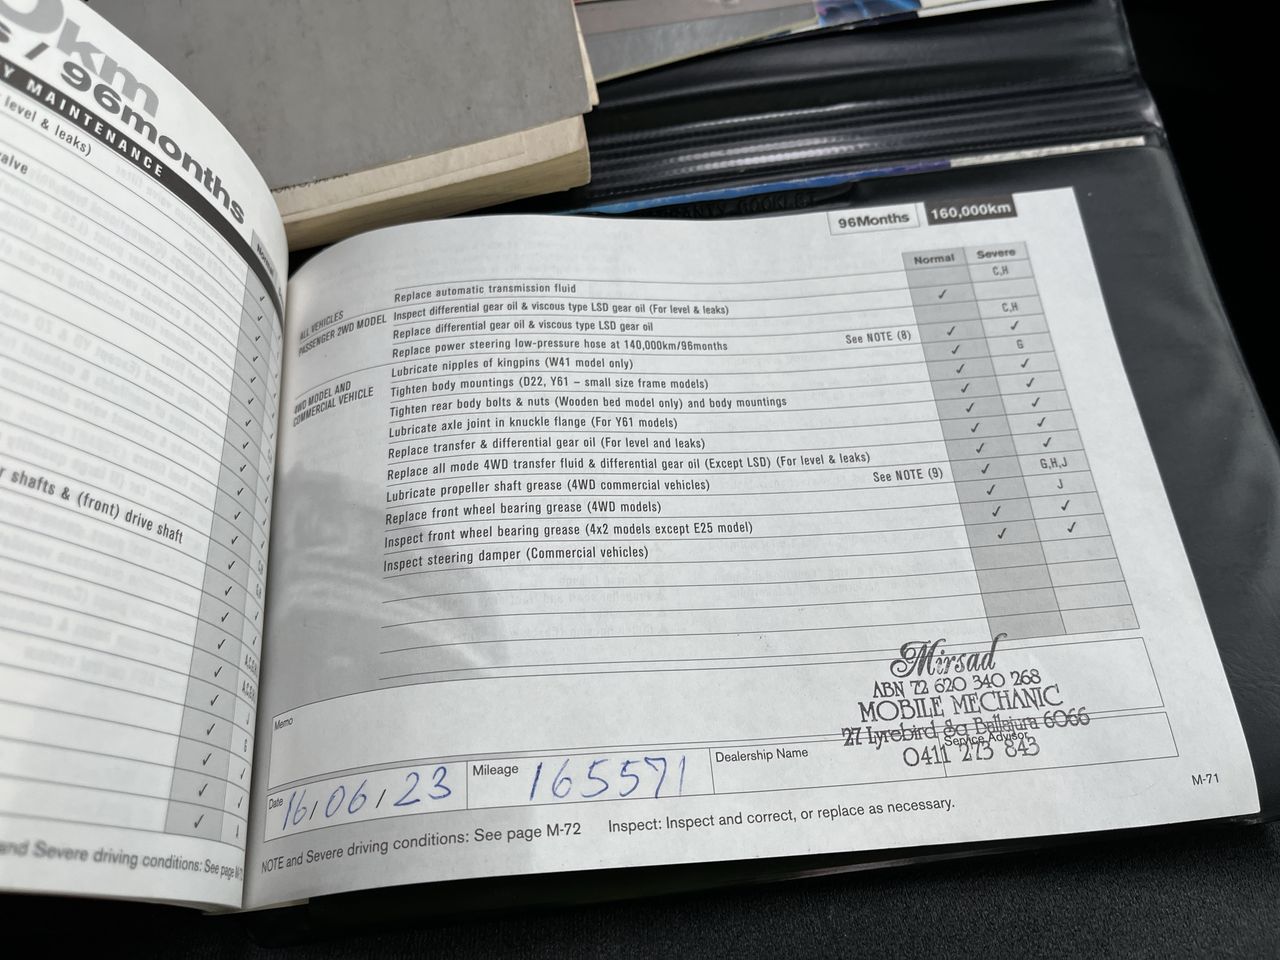 0km
s / 96months
Y MAINTENANCE
level & leaks)
valve
Normal
r shafts & (front) drive shaft
and Severe driving conditions: See page M-72
96Months 160,000km
Normal Severe
ALL VEHICLES
PASSENGER 2WD MODEL
Replace automatic transmission fluid C,H
Inspect differential gear oil & viscous type LSD gear oil (For level & leaks) ✓
Replace differential gear oil & viscous type LSD gear oil C,H
Replace power steering low-pressure hose at 140,000km/96months See NOTE (8) ✓ ✓
4WD MODEL AND
COMMERCIAL VEHICLE
Lubricate nipples of kingpins (W41 model only) ✓ G
Tighten body mountings (D22, Y61 – small size frame models) ✓ ✓
Tighten rear body bolts & nuts (Wooden bed model only) and body mountings ✓ ✓
Lubricate axle joint in knuckle flange (For Y61 models) ✓ ✓
Replace transfer & differential gear oil (For level and leaks) ✓ ✓
Replace all mode 4WD transfer fluid & differential gear oil (Except LSD) (For level & leaks) ✓ ✓
Lubricate propeller shaft grease (4WD commercial vehicles) See NOTE (9) ✓ G,H,J
Replace front wheel bearing grease (4WD models) ✓ J
Inspect front wheel bearing grease (4x2 models except E25 model) ✓ ✓
Inspect steering damper (Commercial vehicles) ✓ ✓
Memo
Mirsad
ABN 72 620 340 268
MOBILE MECHANIC
27 Lyrebird Sq Ballajura 6066
0411 273 843
Date 16/06/23 Mileage 165571 Dealership Name Service Advisor
NOTE and Severe driving conditions: See page M-72 Inspect: Inspect and correct, or replace as necessary.
M-71